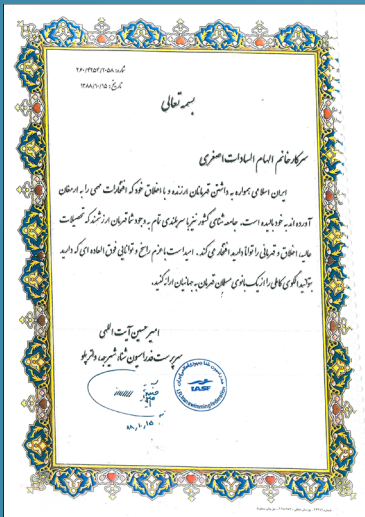 شماره: ۲۶۰/۴۲۵۲/۲۰۵۸
تاریخ: ۱۳۸۸/۱۰/۱۵
بسمه تعالی
سرکار خانم الهام السادات اصغری
ایران اسلامی همواره به داشتن قهرمانان ارزنده و با اخلاق خود که افتخارات مهمی را به ارمغان
آورده اند به خود بالیده است. جامعه شنای کشور نیز با سربلندی تمام به وجود شما قهرمان ارزشمند که تحصیلات
عالیه، اخلاق و قهرمانی را توأما دارید افتخار می کند. امید است با عزم راسخ و توانایی فوق العاده ای که دارید
بتوانید الگوی کاملی را از یک بانوی مسلمان قهرمان به جهانیان ارائه کنید.
امیر حسین آیت اللهی
سرپرست فدراسیون شنا، شیرجه، واترپلو
IASF
۸۸،۱۰،۱۵